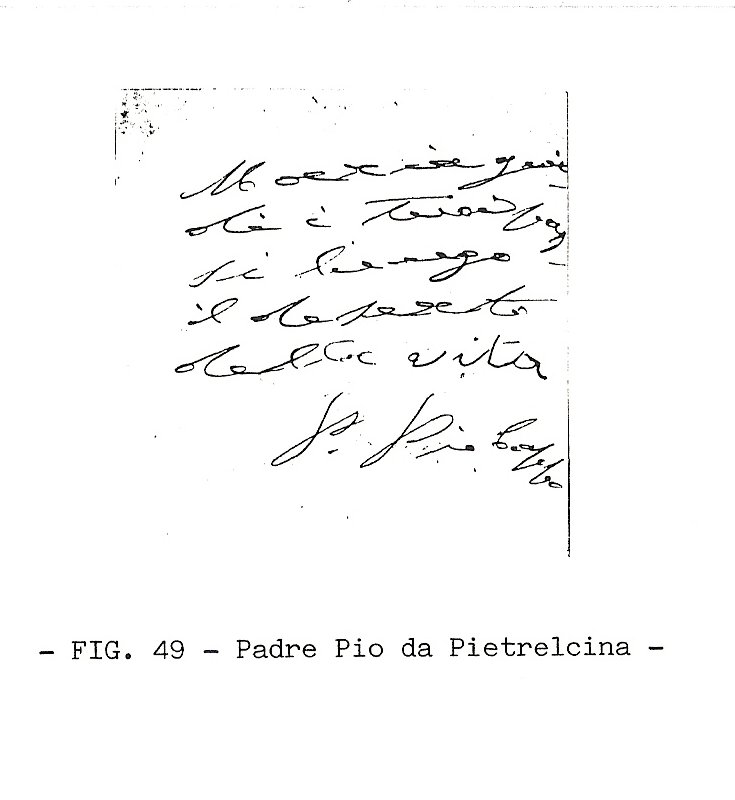 Maria gui-
di i tuoi pas-
si lungo
il deserto
della vita
P. Pio Capp.
- FIG. 49 - Padre Pio da Pietrelcina -